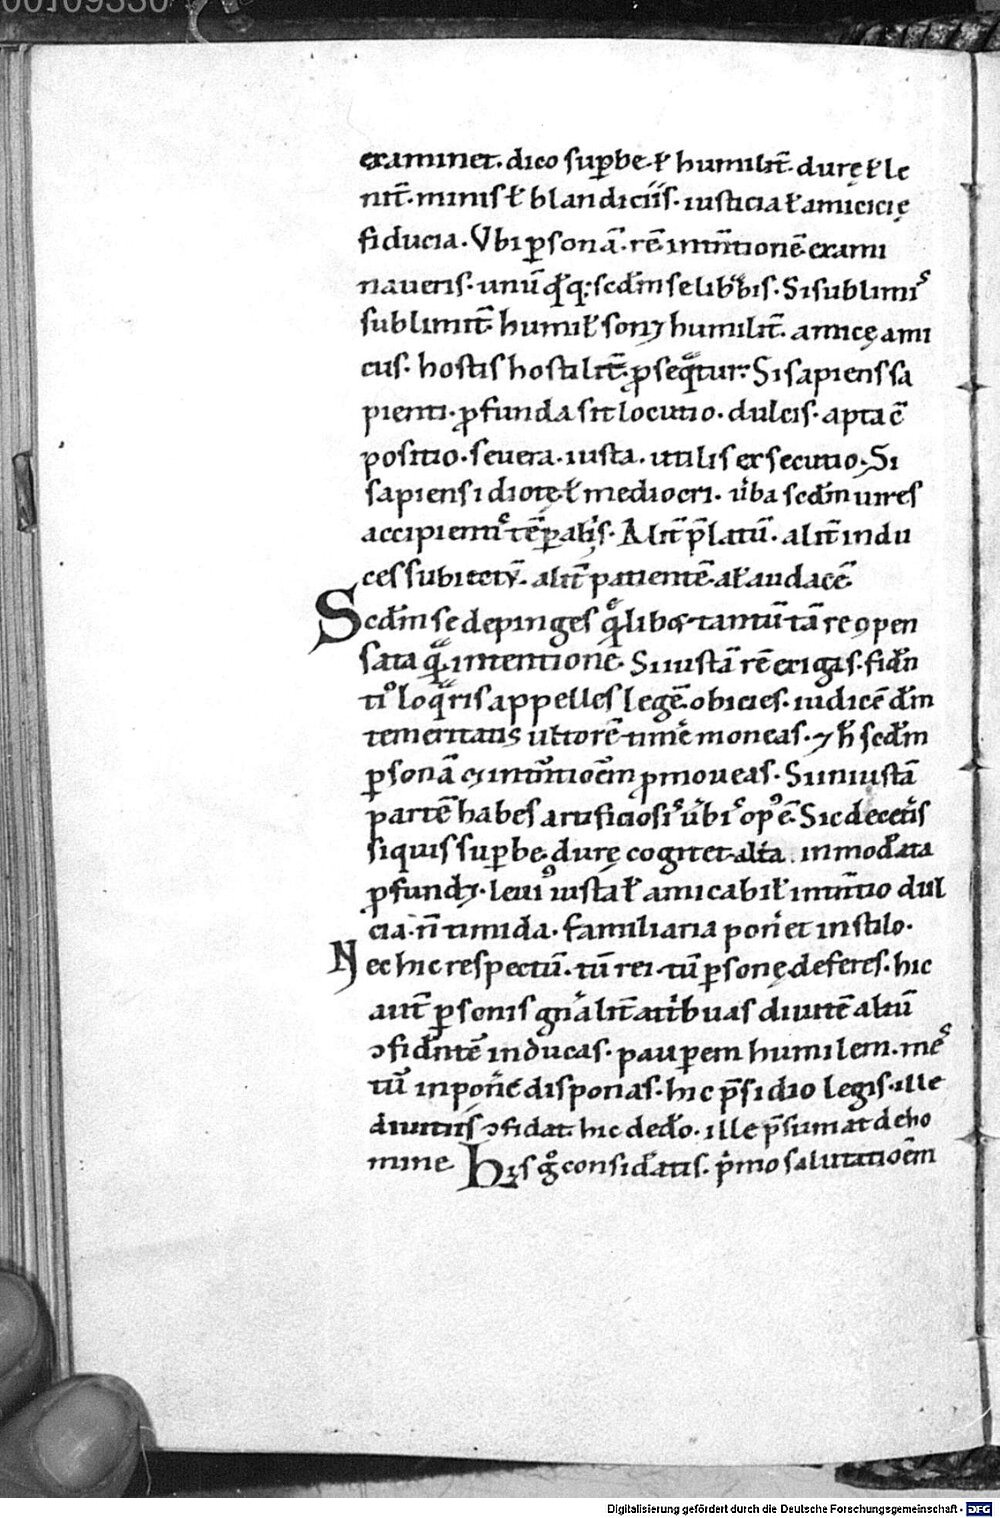 00109330
examinet. dico suꝑbe. ł humilit̄. durę ł le
nit̄. minis ł blandiciis. iusticia ł amicicię
fiducia. Vbi ꝑsonā. rē intn̄tionē exami
naueris. unū qͩq; scdm̄ se lib̾bis. Si sublimis
sublimit̄. humił son⁊ humilit̄. amicę ami
cus. hostis hostilit̄. ꝓseqͣtur. Si sapiens sa
pienti. ꝓfunda sit locutio. dulcis. apta cō
positio. seuera. iusta. utilis exsecutio. Si
sapiens idiotę. ł mediocri. úba scdm̄ uires
accipientis tēꝑabis. Alit̄ p̄latū. alit̄ indu
ces subiectū. alit̄ patientē. ał audacē
Scdm̄ se depinges qͣlibet. tantū tā re ꝯpen
sata qͣ intentione. Si iustā rē exigas. fidn̄
tiꝰ loqͣris appelles legē. obicies. iudicē dm̄
temeritatis ultorē timē moneas. ⁊ h̄ scdm̄
ꝑsonā ei intn̄tioēm ꝓmoueas. Si iniustā
partē habes artificiosi úbi opꝰ ē. Sic decet̾is
siquis suꝑbe. durę cogitet. alta. inmodata
ꝓfund⁊. leuiꝰ iusta ł amicabił intn̄tio dul
cia. n̄ timida. familiaria pon̾et in stilo.
Nec hic respectū. tū rei. tū ꝑsonę deferes. hic
aut̄ ꝑsonis gn̄alit̄ attibuas diuitē altū
ꝯfidn̄tē inducas. pauꝑem humilem. mę
tū inpon̾e disponas. hic p̄sidio legis. ille
diuitiis ꝯfidat. hic dedo. ille p̄sumat de ho
mine. His gͦ considatis. p̾mo salutatioēm
Digitalisierung gefördert durch die Deutsche Forschungsgemeinschaft - DFG